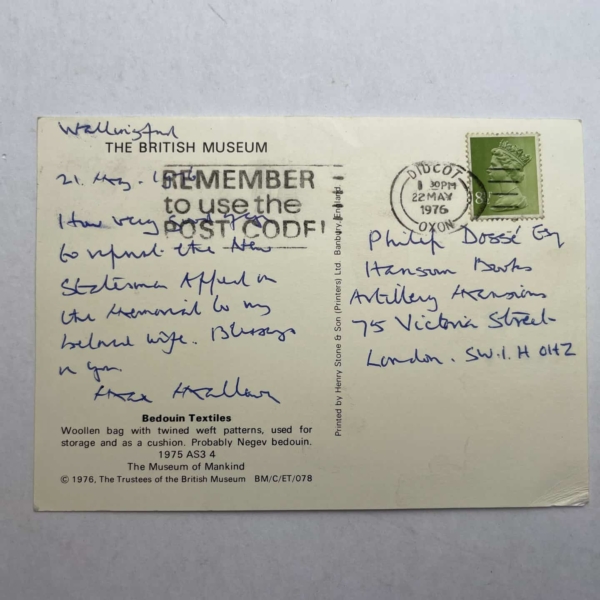 Wallingford
THE BRITISH MUSEUM
21. May. 1976
REMEMBER
to use the
POST CODE!
How very good of you
to reprint the New
Statesman Appeal in
the Memorial to my
beloved wife. Blessings
on you
Max Mallowan
Bedouin Textiles
Woollen bag with twined weft patterns, used for
storage and as a cushion. Probably Negev bedouin.
1975 AS3 4
The Museum of Mankind
© 1976, The Trustees of the British Museum BM/C/ET/078
Printed by Henry Stone & Son (Printers) Ltd. Banbury, England.
DIDCOT
30PM
22 MAY
1976
OXON
8
Philip Dossé Esq
Hansom Books
Artillery Mansions
75 Victoria Street
London. SW.1.H OHZ